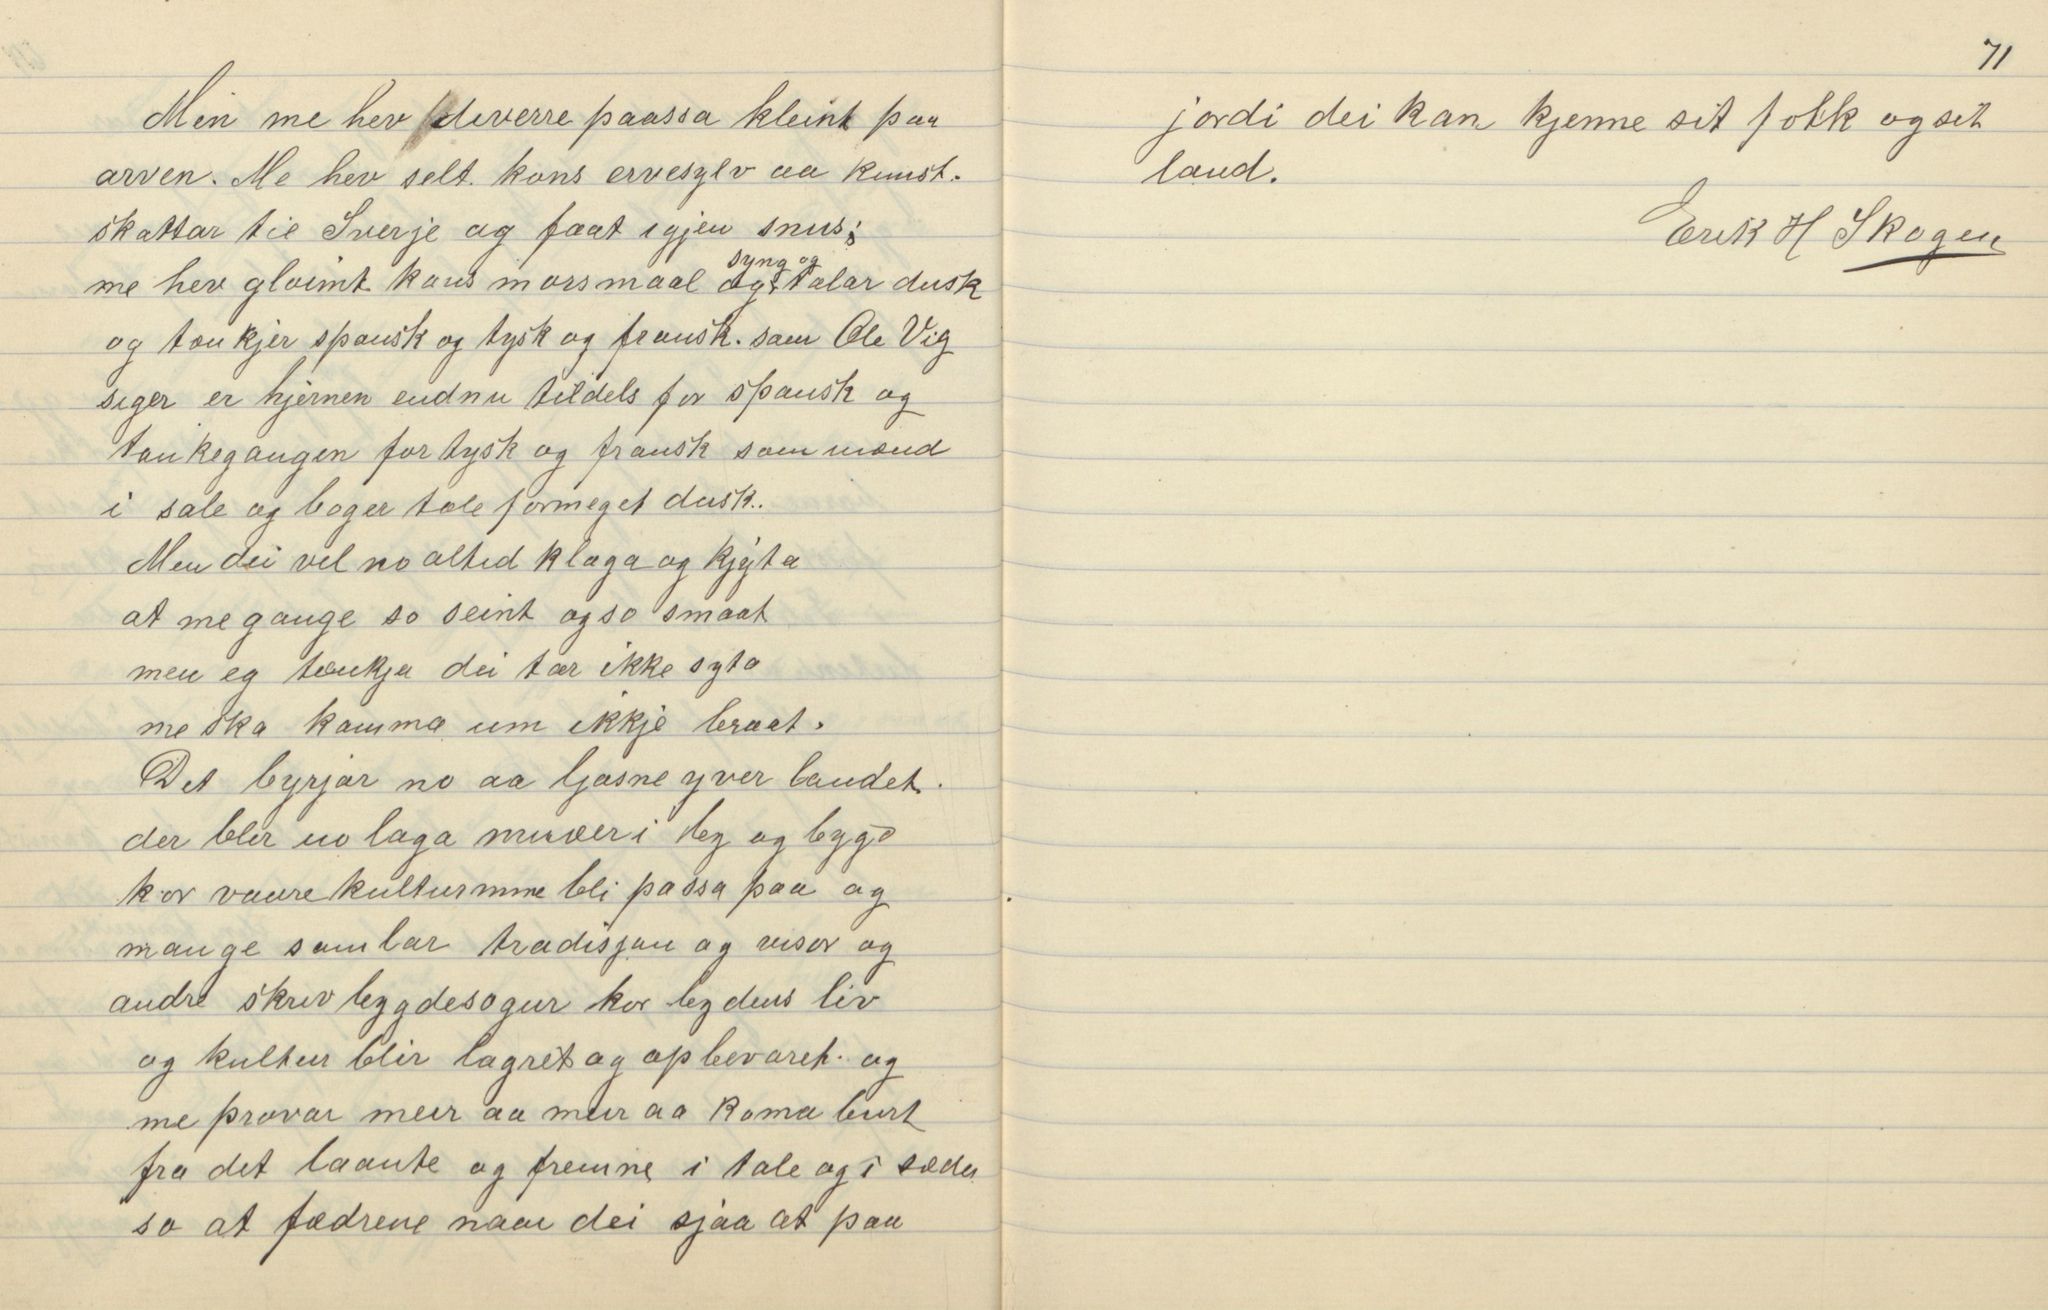 Men me hev diverre paassa kleint paa
arven. Me hev selt. hans ervesylv aa kunst-
skattar til Sverje og faat igjen snus;
me hev gloimt hans morsmaal og syng og talar dusk
og tænkjer spansk og tysk og fransk. som Ole Vig
siger er hjernen endnu tildels for spansk og
tankegangen for tysk og fransk som mænd
i sale og bøger tale formeget dusk..
Men dei vil no altid klaga og kjyta
at me gange so seint og so smaat
men eg tænkja dei tær ikke syta
me ska komma um ikkje braat.
Det byrjar no aa ljosne yver landet.
der blir no laga muséer i by og bygd
kor vaare kulturminne bli passa paa og
mange samlar tradisjon og visor og
andre skriv bygdesogur kor bygdens liv
og kultur blir lagret og opbevaret. og
me prøvar meir aa meir aa koma burt
fra det laante og fremne i tale og i sæder
so at fædrene naar dei sjaa at paa
71
jordi dei kan kjenne sit folk og sit
land.
Erik H Skogen